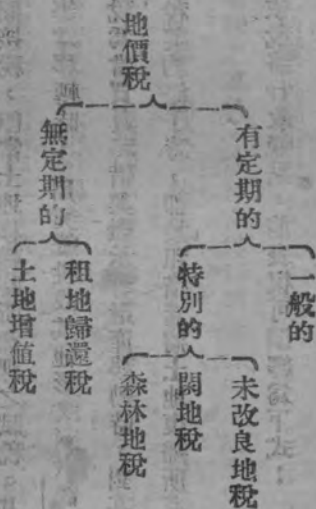 地價稅
有定期的
一般的
特別的
未改良地稅
閑地稅
森林地稅
無定期的
租地歸還稅
土地增值稅